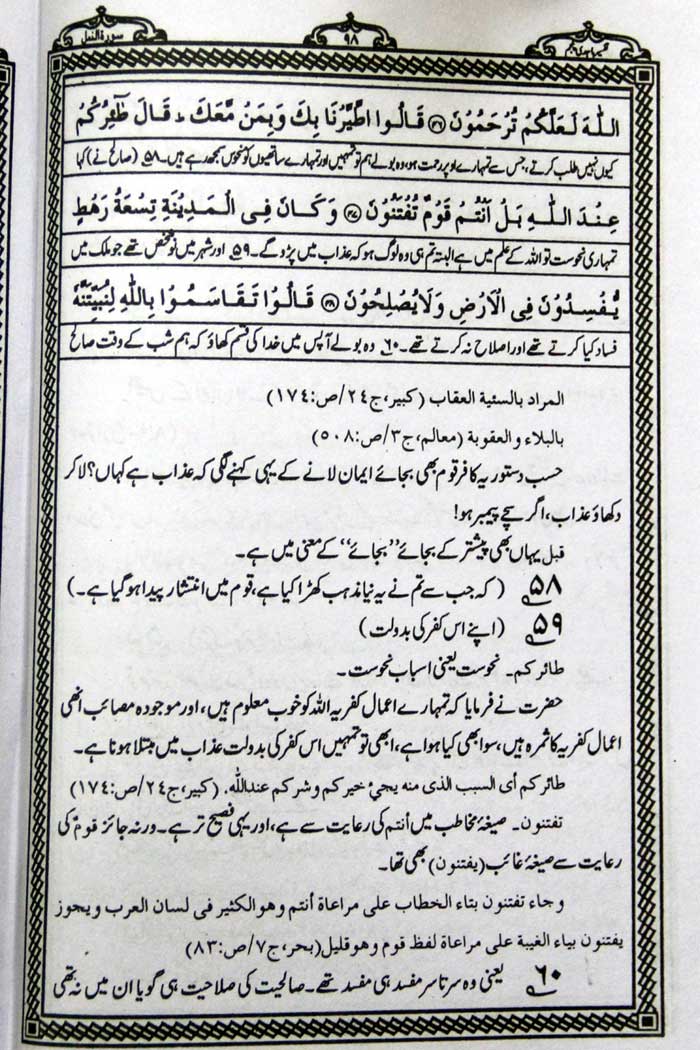 سورۃ النمل
۹۸
تفسیر ماجدی پنجم
اللّٰهَ لَعَلَّكُمْ تُرْحَمُوْنَ ﴿۴۶﴾ قَالُوا اطَّيَّرْنَا بِكَ وَبِمَنْ مَّعَكَ ؕ قَالَ طٰٓئِرُكُمْ
کیوں نہیں طلب کرتے، جس سے تمہارے اوپر رحمت ہو، وہ بولے ہم تو تمہیں اور تمہارے ساتھیوں کو منحوس سمجھ رہے ہیں۔ ۵۸ (صالح نے) کہا
عِنْدَ اللّٰهِ بَلْ اَنْتُمْ قَوْمٌ تُفْتَنُوْنَ ﴿۴۷﴾ وَكَانَ فِى الْمَدِيْنَةِ تِسْعَةُ رَهْطٍ
تمہاری نحوست تو اللہ کے علم میں ہے البتہ تم ہی وہ لوگ ہو کہ عذاب میں پڑو گے۔ ۵۹ اور شہر میں نو شخص تھے جو ملک میں
يُّفْسِدُوْنَ فِى الْاَرْضِ وَلَا يُصْلِحُوْنَ ﴿۴۸﴾ قَالُوْا تَقَاسَمُوْا بِاللّٰهِ لَنُبَيِّتَنَّهٗ
فساد کیا کرتے تھے اور اصلاح نہ کرتے تھے۔ ۶۰ وہ بولے آپس میں خدا کی قسم کھاؤ کہ ہم شب کے وقت صالح
المراد بالسئية العقاب (کبیر، ج۲۴/ص:۱۷۴)
بالبلاء و العقوبة (معالم، ج۳/ص:۵۰۸)
حسب دستور یہ کافر قوم بھی بجائے ایمان لانے کے یہی کہنے لگی کہ عذاب ہے کہاں؟ لا کر
دکھاؤ عذاب، اگر سچے پیمبر ہو!
قبل یہاں بھی پیشتر کے بجائے ”بجائے“ کے معنی میں ہے۔
۵۸ (کہ جب سے تم نے یہ نیا مذہب کھڑا کیا ہے، قوم میں انتشار پیدا ہو گیا ہے۔)
۵۹ (اپنے اس کفر کی بدولت)
طائركم۔ نحوست یعنی اسباب نحوست۔
حضرت نے فرمایا کہ تمہارے اعمال کفریہ اللہ کو خوب معلوم ہیں، اور موجودہ مصائب انھی
اعمال کفریہ کا ثمرہ ہیں، سو ابھی کیا ہوا ہے، ابھی تو تمہیں اس کفر کی بدولت عذاب میں مبتلا ہونا ہے۔
طائركم أى السبب الذى منه يجئ خيركم وشركم عندالله. (کبیر، ج۲۴/ص:۱۷۴)
تفتنون۔ صیغۂ مخاطب میں أنتم کی رعایت سے ہے، اور یہی فصیح تر ہے۔ ورنہ جائز قومٌ کی
رعایت سے صیغۂ غائب (یفتنون) بھی تھا۔
وجاء تفتنون بتاء الخطاب على مراعاة أنتم وهو الكثير فى لسان العرب ويجوز
يفتنون بياء الغيبة على مراعاة لفظ قوم وهو قليل (بحر، ج۷/ص:۸۳)
۶۰ یعنی وہ سرتاسر مفسد ہی مفسد تھے۔ صالحیت کی صلاحیت ہی گویا ان میں نہ تھی